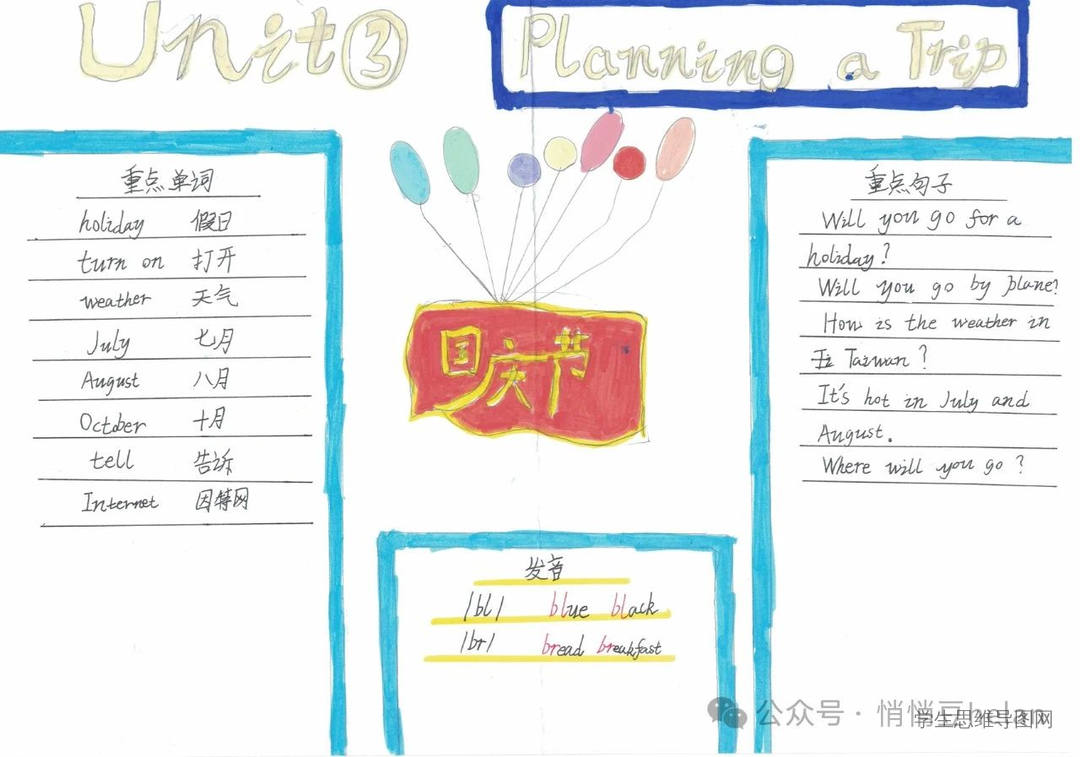 Unit③
Planning a Trip
重点单词
holiday 假日
turn on 打开
weather 天气
July 七月
August 八月
October 十月
tell 告诉
Internet 因特网
国庆节
发音
/bl/ blue black
/br/ bread breakfast
重点句子
Will you go for a
holiday?
Will you go by plane?
How is the weather in
Taiwan?
It's hot in July and
August.
Where will you go?
公众号·悄悄豆
学生思维导图网